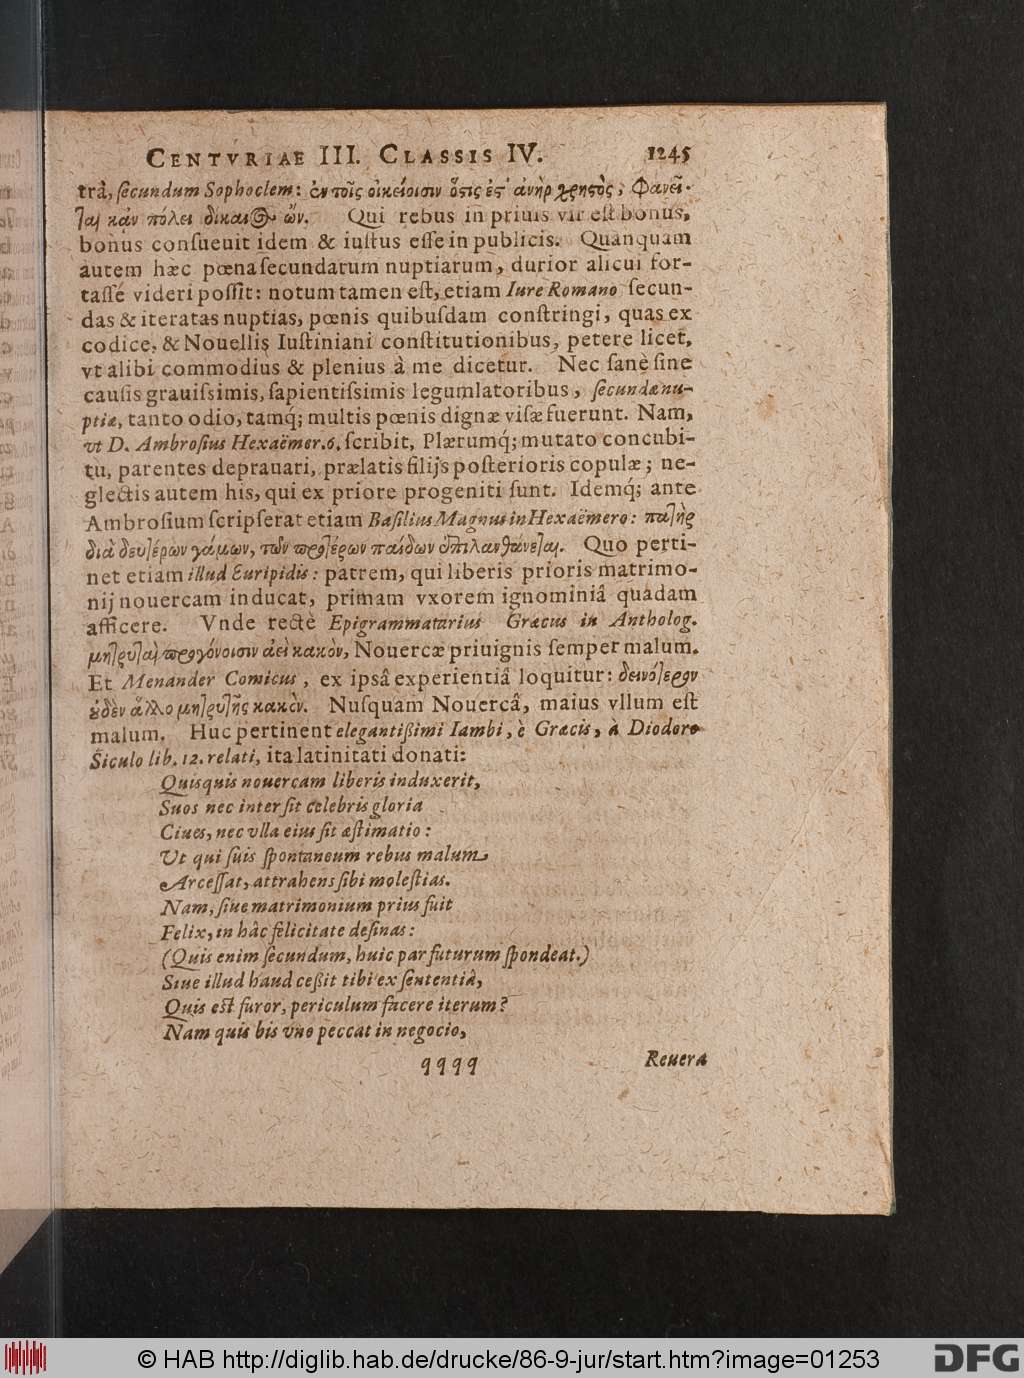 CENTVRIAE III. CLASSIS IV. 1245
trà, ſecundum Sophoclem: ἐν τοῖς οἰκείοισιν ὅςις ἐς' ἀνὴρ χρηςὸς, Φανεῖ-
ται κἀν πόλει δίκαιος ὤν. Qui rebus in priuis vir eſt bonus,
bonus conſueuit idem & iuſtus eſſe in publicis. Quanquam
autem hæc pœna ſecundarum nuptiarum, durior alicui for-
taſſé videri poſſit: notum tamen eſt, etiam Iure Romano ſecun-
das & iteratas nuptias, pœnis quibuſdam conſtringi, quas ex
codice, & Nouellis Iuſtiniani conſtitutionibus, petere licet,
vt alibi commodiùs & pleniùs à me dicetur. Nec ſanè ſine
cauſis grauiſsimis, ſapientiſsimis legumlatoribus, ſecundæ nu-
ptiæ, tanto odio, tamq́; multis pœnis dignæ viſæ fuerunt. Nam,
vt D. Ambroſius Hexaëmer. 6, ſcribit, Plærumq́; mutato concubi-
tu, parentes deprauari, prælatis filijs poſterioris copulæ; ne-
glectis autem his, qui ex priore progeniti ſunt. Idemq́; ante
Ambroſium ſcripſerat etiam Baſilius Magnus in Hexaëmero: πατὴρ
διὰ δευτέρων γάμων, τῶν προτέρων παίδων ἐπιλανθάνεται. Quo perti-
net etiam illud Euripidis: patrem, qui liberis prioris matrimo-
nij nouercam inducat, primam vxorem ignominiâ quadam
afficere. Vnde rectè Epigrammatarius Græcus in Antholog.
μητρυιαὶ προγόνοισιν ἀεὶ κακὸν, Nouercæ priuignis ſemper malum.
Et Menander Comicus, ex ipsâ experientiâ loquitur: δεινότερον
οὐδὲν ἄλλο μητρυιῆς κακὸν. Nuſquam Nouercâ, maius vllum eſt
malum. Huc pertinent elegantißimi Iambi, è Græcis, à Diodoro
Siculo lib. 12. relati, ita latinitati donati:
Quisquis nouercam liberis induxerit,
Suos nec inter ſit celebris gloria
Ciues, nec vlla eius ſit æſtimatio:
Vt qui ſuis ſpontaneum rebus malum
Arceſſat, attrahens ſibi moleſtias.
Nam, ſiue matrimonium prius fuit
Felix, in hâc felicitate deſinas:
(Quis enim ſecundum, huic par futurum ſpondeat.)
Siue illud haud ceßit tibi ex ſententiâ,
Quis eſt furor, periculum facere iterum?
Nam quis bis vno peccat in negocio,
qqqq Reuera
© HAB http://diglib.hab.de/drucke/86-9-jur/start.htm?image=01253 DFG